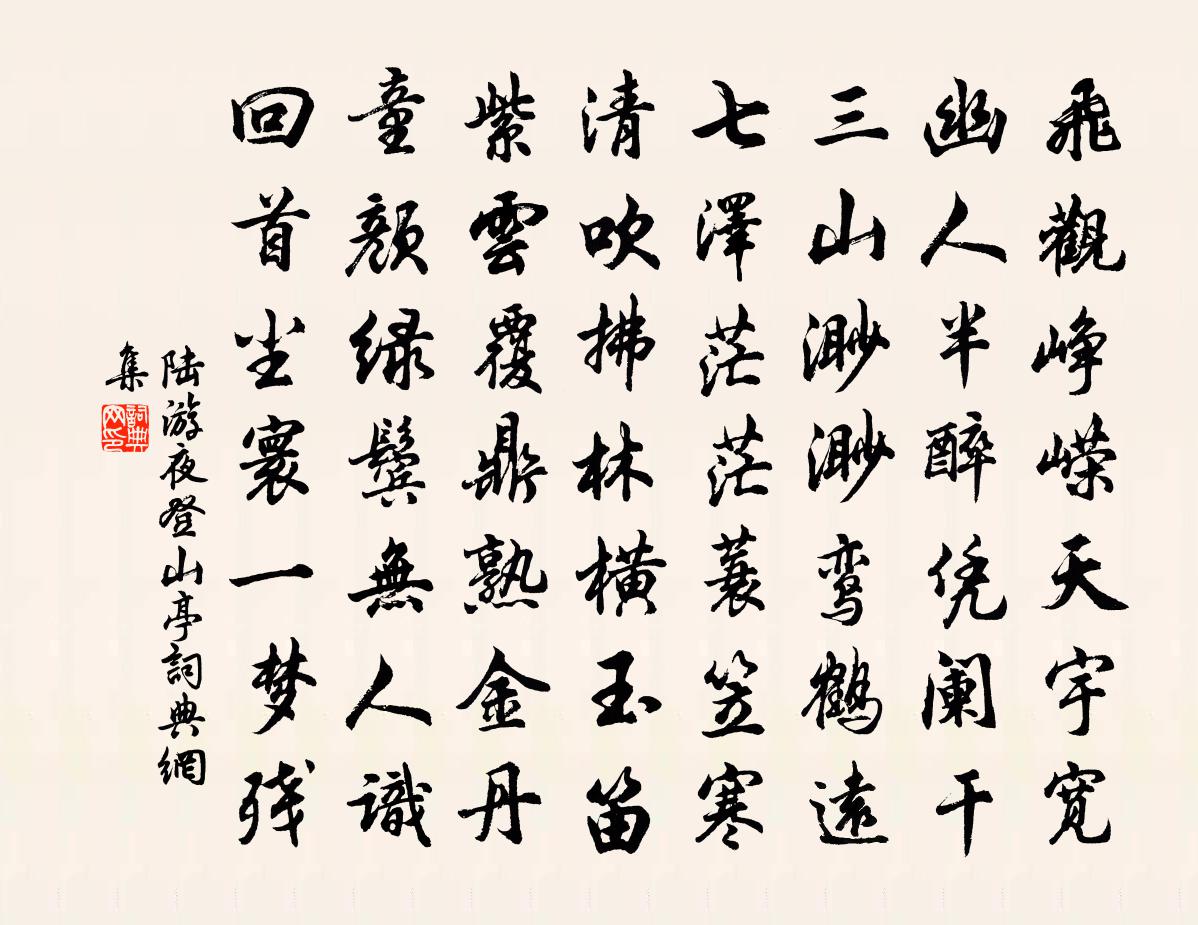 飛觀峥嵘天宇寬
幽人半醉凭阑干
三山渺渺鸾鶴遠
七澤茫茫蓑笠寒
清吹拂林橫玉笛
紫雲覆鼎熟金丹
童颜绿鬓無人識
回首尘寰一梦残
陆游夜登山亭詞典網
集
詞典
网印